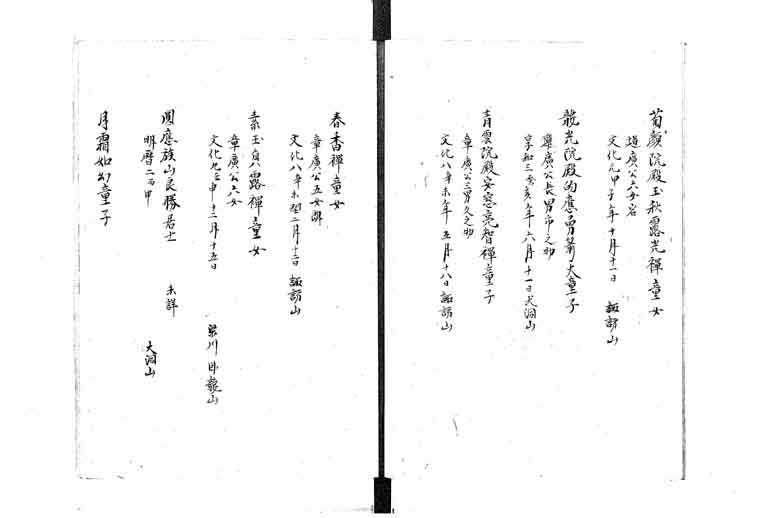 蘭顔院殿玉秋露光禪童女
道廣公六女岩
文化元甲子年十月十一日 諏訪山
龍光院殿的應勇箭大童子
章廣公長男市之物
享和三癸亥年六月十一日大洞山
青雲院殿安窓亮智禪童子
章廣公三男久之物
文化八辛未年五月十八日諏訪山
春香禪童女
章廣公五女
文化八辛未閏二月十三日 諏訪山
素玉貞露禪童女
章廣公六女
文化九壬申十二月十五日 梁川 卧龍山
圓應族山良勝居士 未詳
明暦二丙申 大洞山
月霜如幻童子